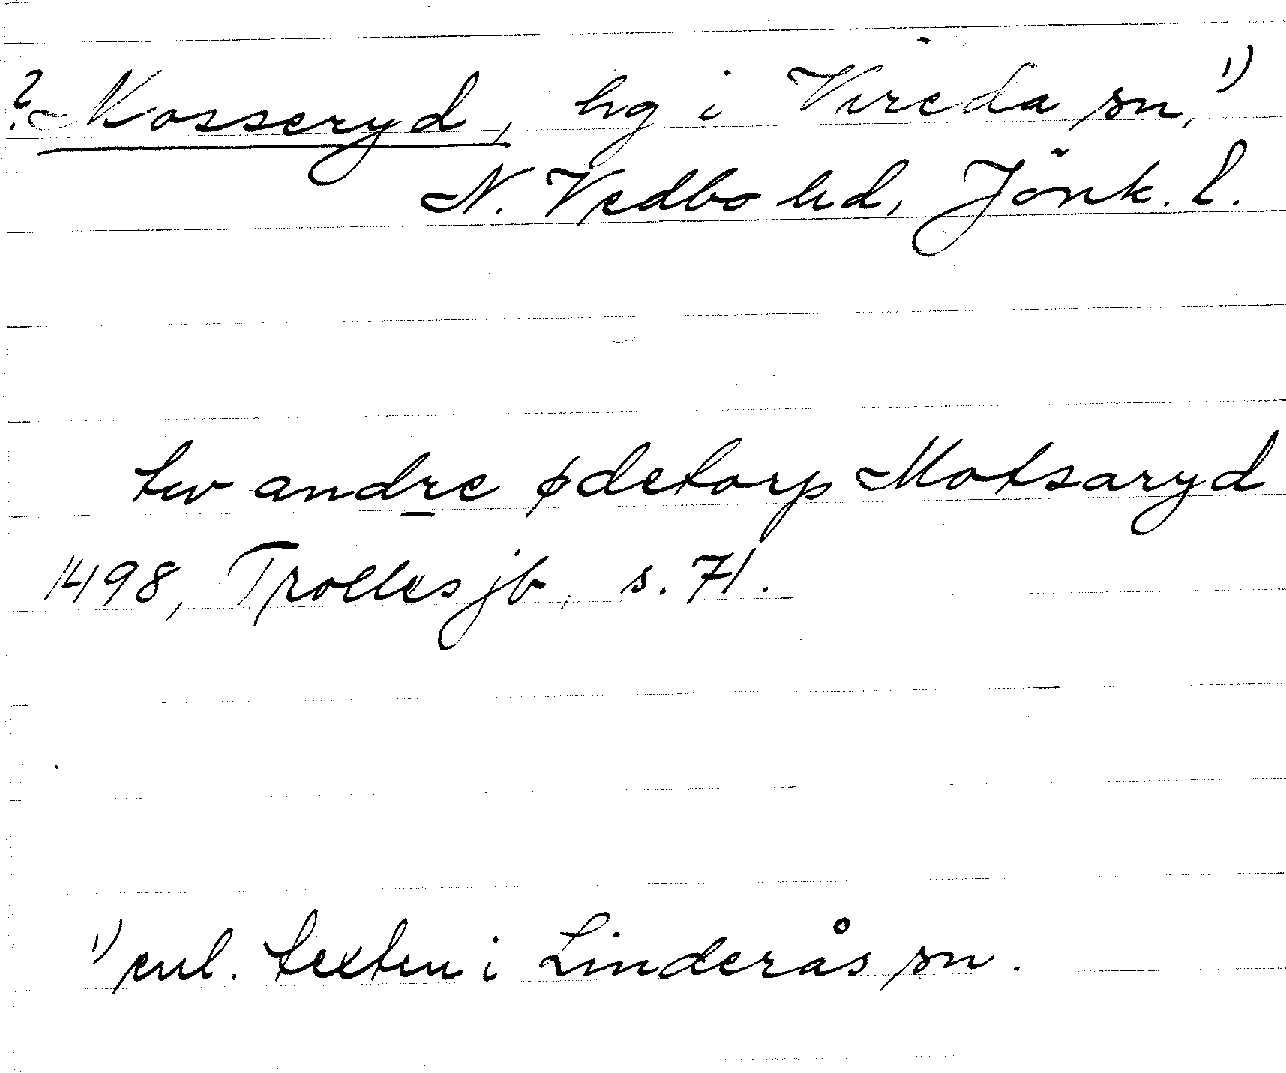 ? Mosseryd, hg i Vireda sn,¹⁾
N. Vedbo hd, Jönk. l.
tw andre ødetorp Motsaryd
1498, Trolles jb, s. 71.
¹⁾ enl. texten i Linderås sn.